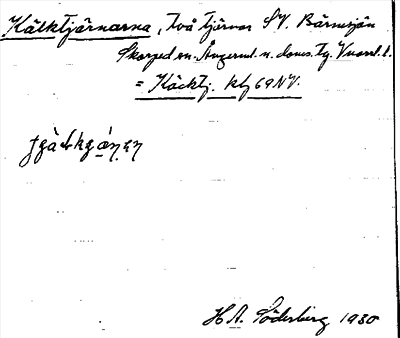 Kälktjärnarna, två tjärnar SV. Bärmsjön
Skorped sn. Ångerml. n. doms. tg. Vnorrl. l.
= Käcktj. kbl 69 NV.
H A. Söderberg 1930